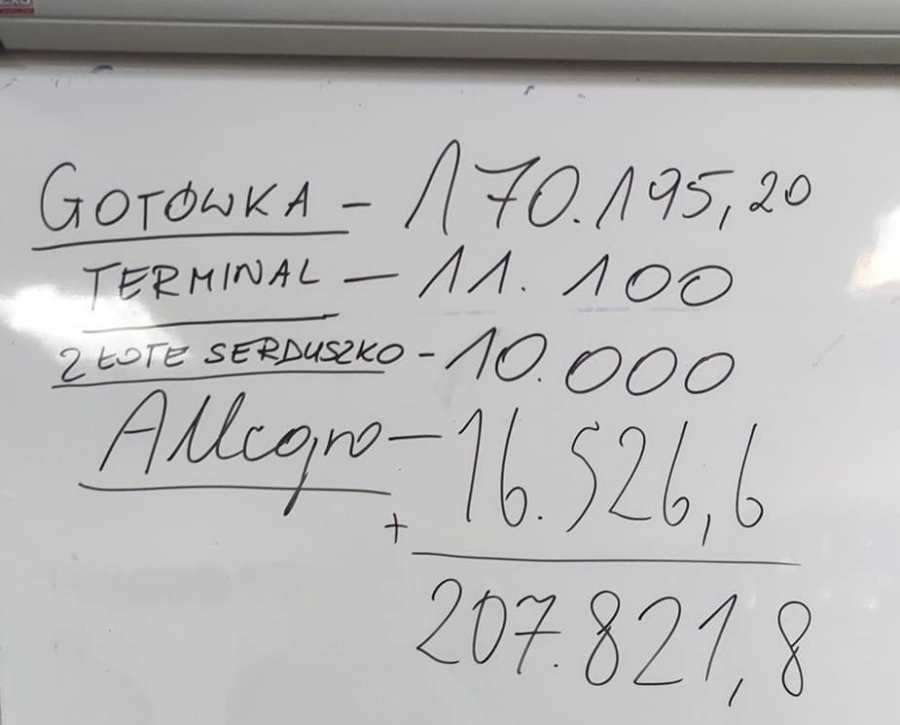 GOTÓWKA - 170.195,20
TERMINAL - 11.100
ZŁOTE SERDUSZKO - 10.000
Allegro - 16.526,6
+
207.821,8